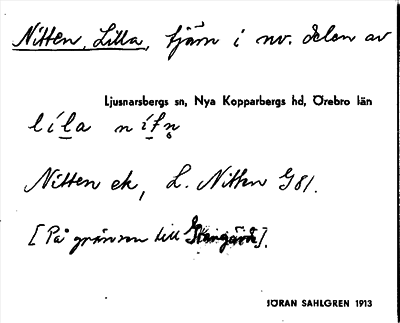 Nitten, Lilla, tjärn i nv. delen av
Ljusnarsbergs sn, Nya Kopparbergs hd, Örebro län
líla nítn̥
Nitten ek, L. Nitten G81.
[På gränsen till Grangärde].
JÖRAN SAHLGREN 1913